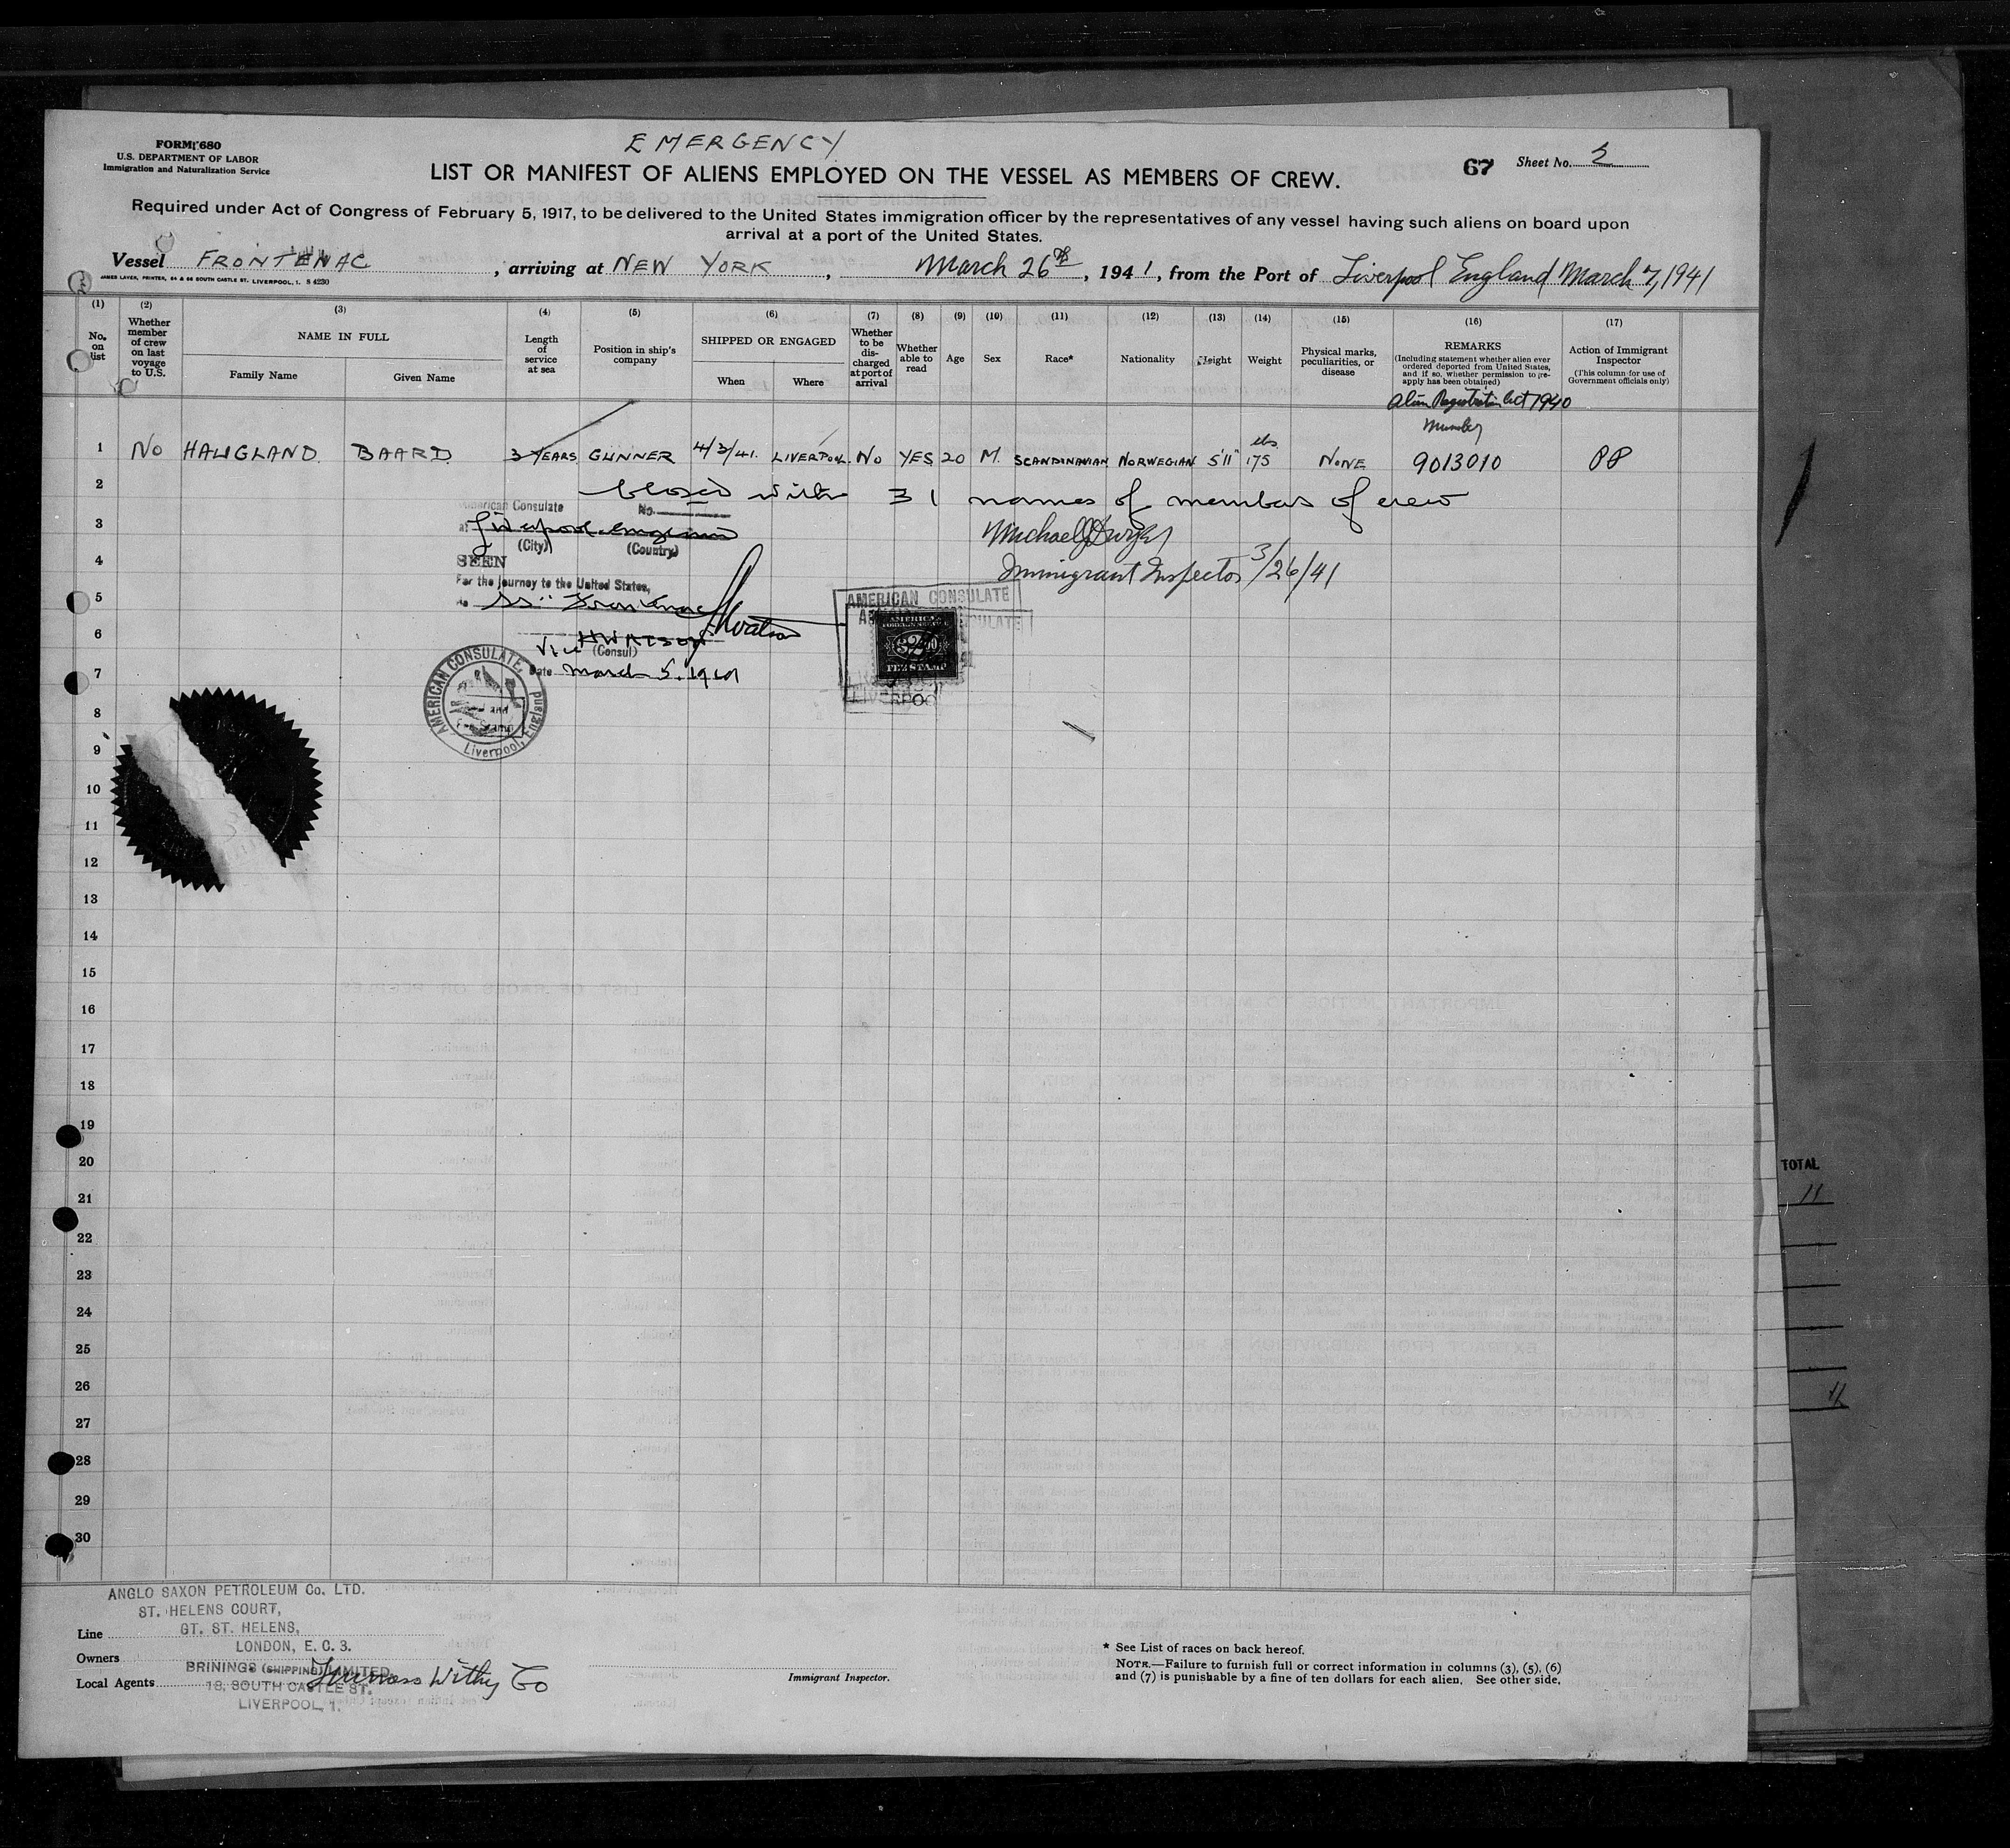 EMERGENCY
FORM 680
U.S. DEPARTMENT OF LABOR
Immigration and Naturalization Service
67 Sheet No. 2
LIST OR MANIFEST OF ALIENS EMPLOYED ON THE VESSEL AS MEMBERS OF CREW.
Required under Act of Congress of February 5, 1917, to be delivered to the United States immigration officer by the representatives of any vessel having such aliens on board upon
arrival at a port of the United States.
Vessel FRONTENAC, arriving at NEW YORK, March 26th, 1941, from the Port of Liverpool England March 7, 1941
JAMES LAVER, PRINTER, 64 & 66 SOUTH CASTLE ST. LIVERPOOL, 1. S 4230
(1) (2) (3) (4) (5) (6) (7) (8) (9) (10) (11) (12) (13) (14) (15) (16) (17)
No. on list
Whether member of crew on last voyage to U.S.
NAME IN FULL
Family Name
Given Name
Length of service at sea
Position in ship's company
SHIPPED OR ENGAGED
When
Where
Whether to be discharged at port of arrival
Whether able to read
Age
Sex
Race*
Nationality
Height
Weight
Physical marks, peculiarities, or disease
REMARKS
(Including statement whether alien ever ordered deported from United States, and if so, whether permission to re-apply has been obtained)
Alien Registration Act 1940
Number
Action of Immigrant Inspector
(This column for use of Government officials only)
1 NO HAUGLAND. BAARD. 3 YEARS GUNNER 4/3/41. LIVERPOOL. NO YES 20 M. SCANDINAVIAN NORWEGIAN 5'11" 175 lbs NONE 9013010 PP
2 Closed with 31 names of members of crew
American Consulate No.
3 at Liverpool England
(City) (Country)
Immigrant Inspector 3/26/41
4 SEEN
For the journey to the United States,
5 SS Frontenac
6 H WATSON
Vice (Consul)
7 Date March 5. 1941
AMERICAN CONSULATE
AMERICAN CONSULATE, Liverpool, England
AMERICAN
FOREIGN SERVICE
FEE STAMP
LIVERPOO
8
9
10
11
12
13
14
15
16
17
18
19
20
21
22
23
24
25
26
27
28
29
30
TOTAL
11
11
ANGLO SAXON PETROLEUM Co. LTD.
ST. HELENS COURT,
Line GT. ST. HELENS,
LONDON, E. C. 3.
Owners
BRININGS (SHIPPING) LIMITED
Local Agents Furness Withy Co
18, SOUTH CASTLE ST.
LIVERPOOL, 1.
Immigrant Inspector.
* See List of races on back hereof.
NOTE.—Failure to furnish full or correct information in columns (3), (5), (6)
and (7) is punishable by a fine of ten dollars for each alien. See other side.